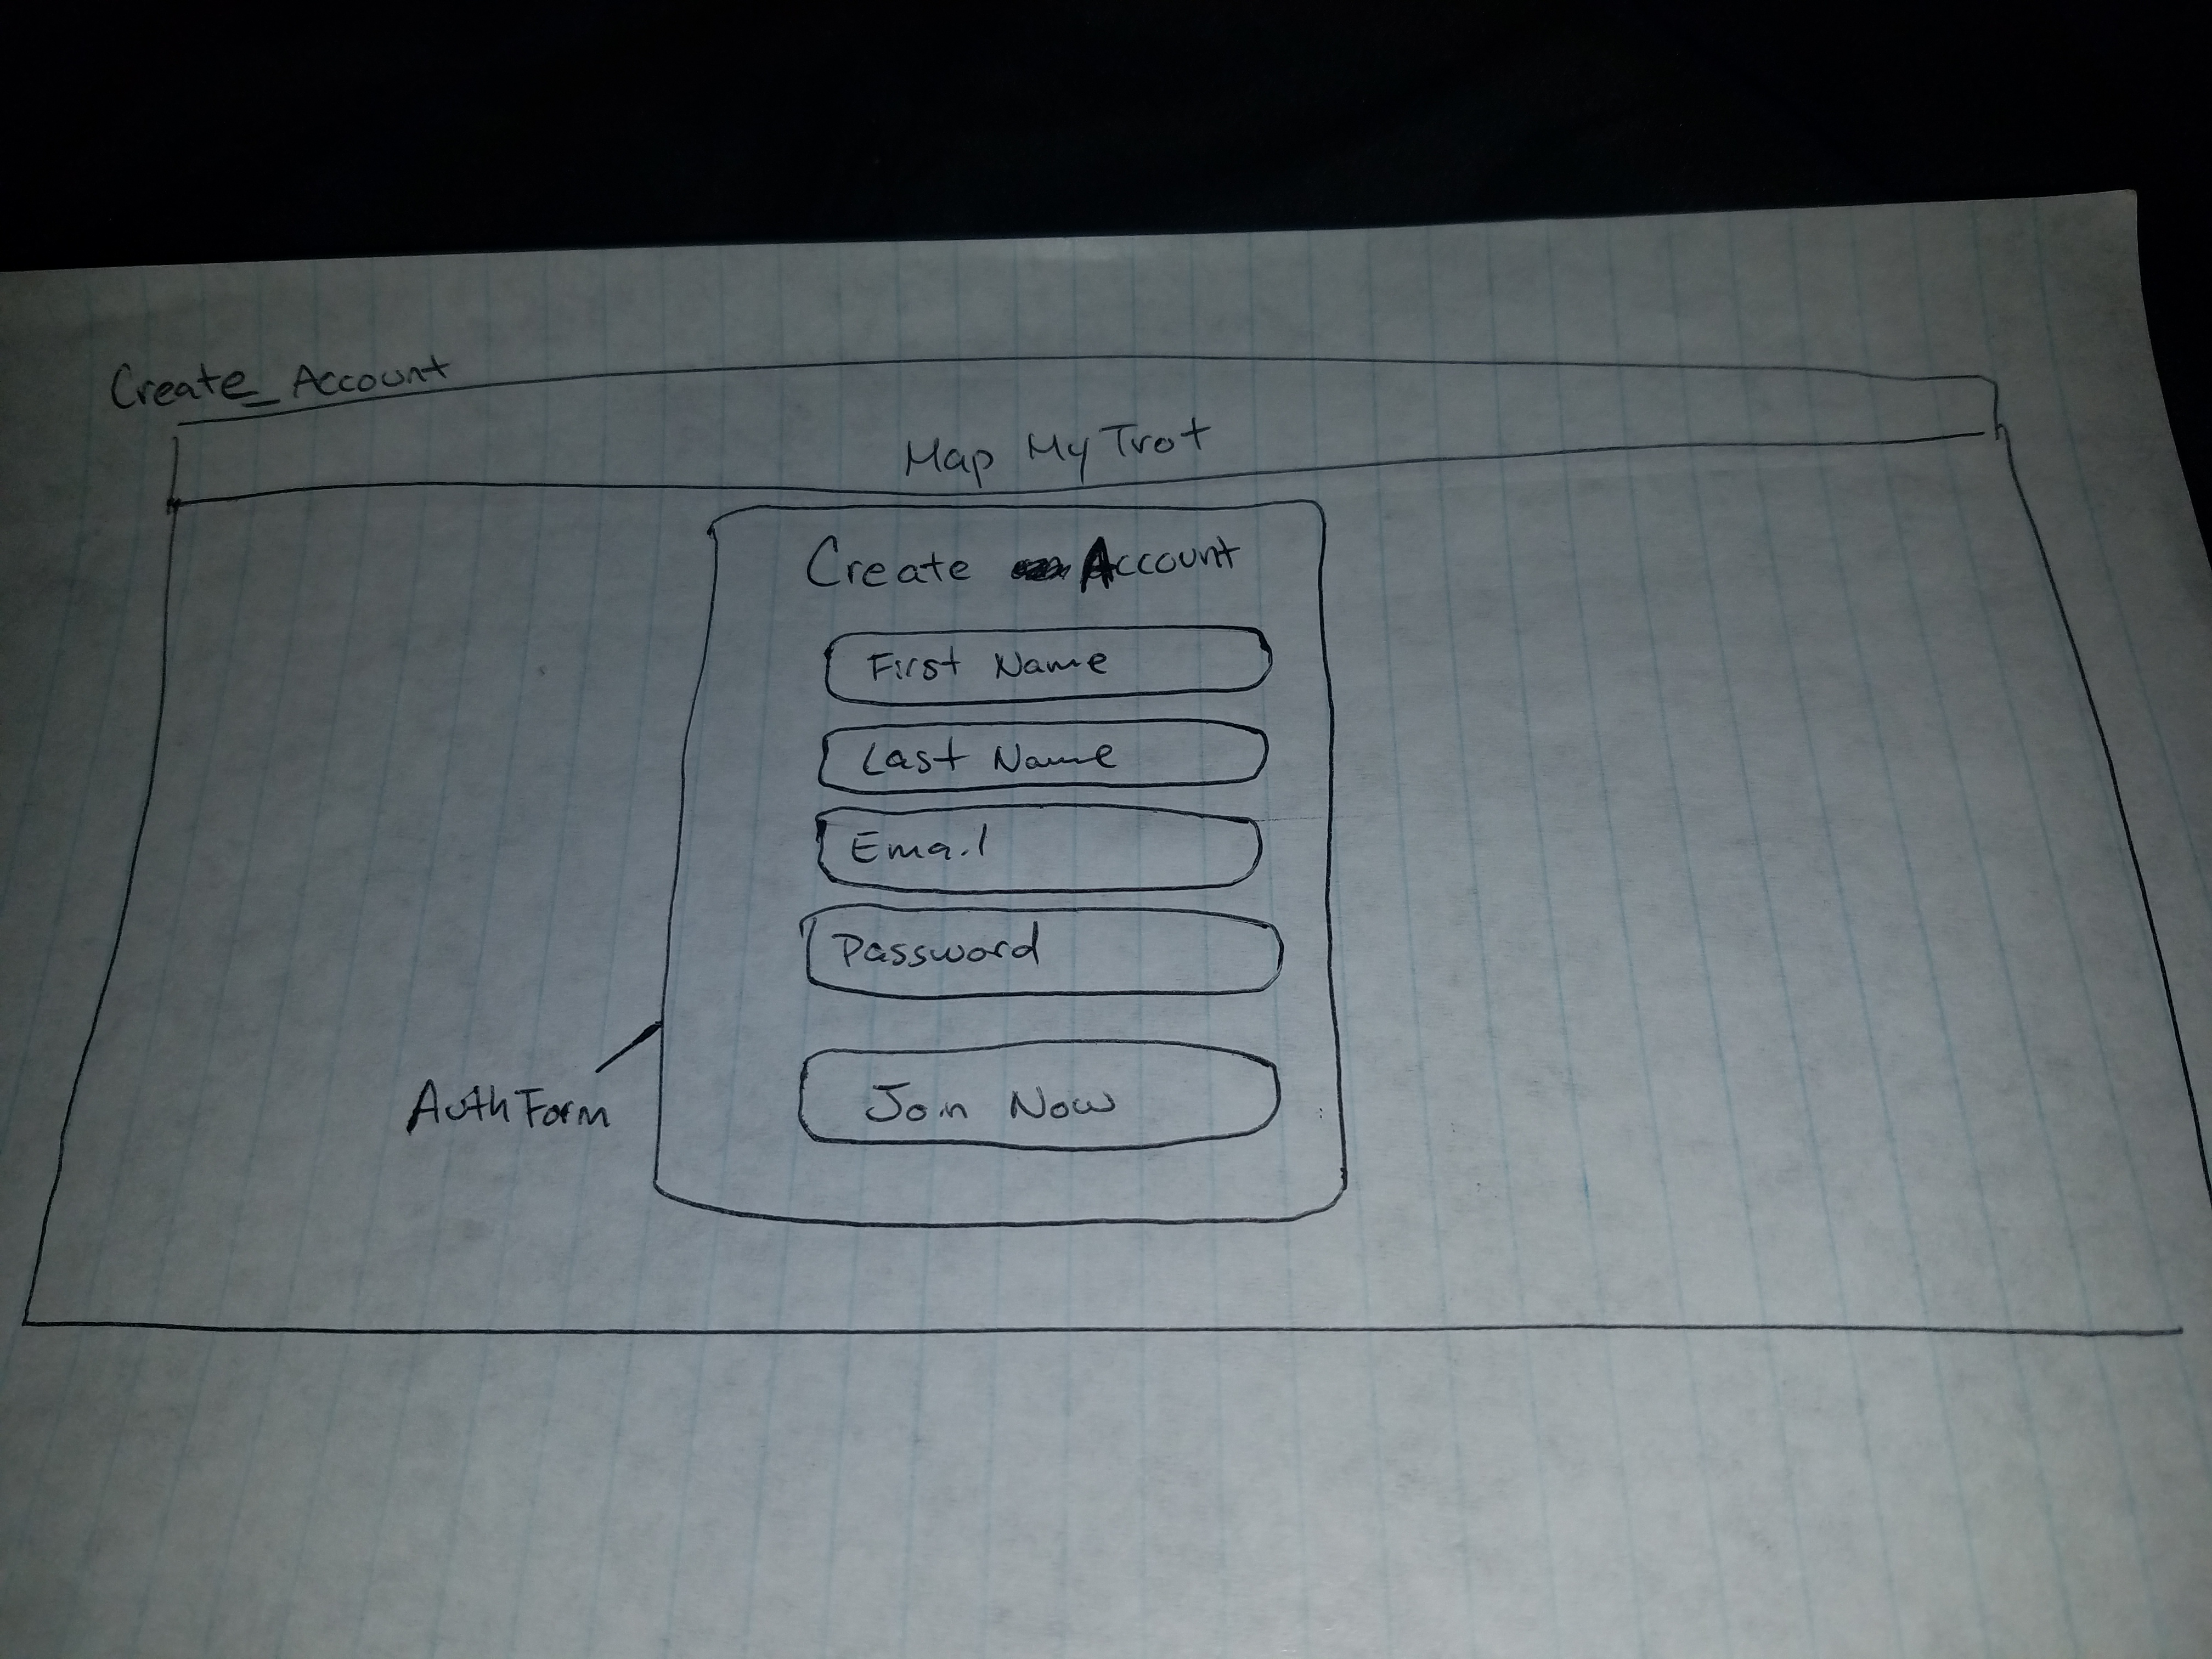 Create_Account
Map My Trot
Create Account
First Name
Last Name
Email
Password
Join Now
AuthForm